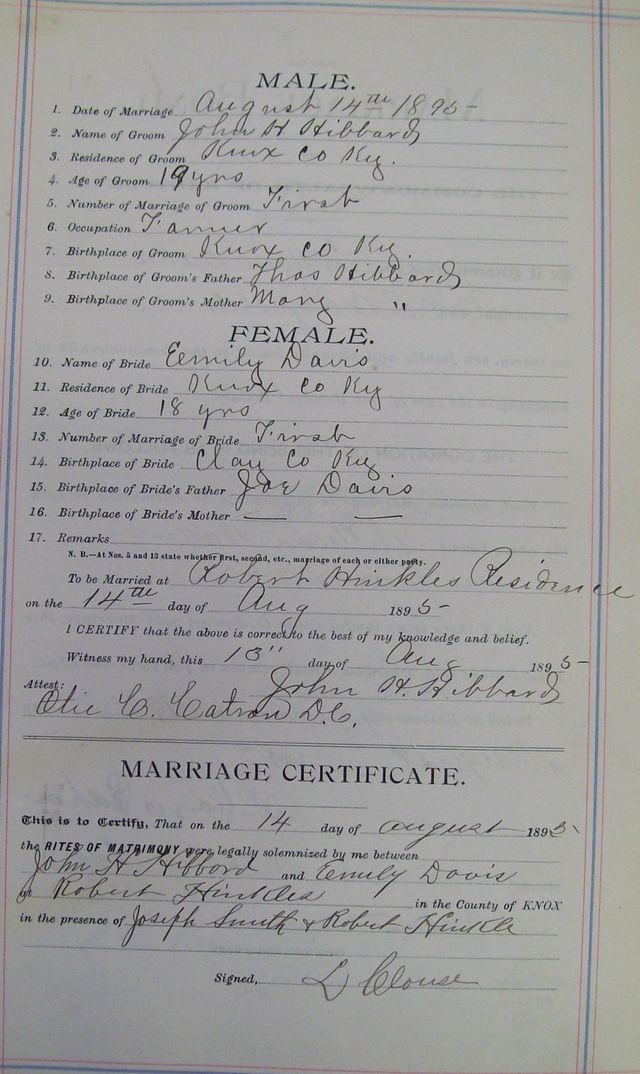 MALE.
1. Date of Marriage August 14th 1895
2. Name of Groom John H Hibbard
3. Residence of Groom Knox Co Ky.
4. Age of Groom 19 yrs
5. Number of Marriage of Groom First
6. Occupation Farmer
7. Birthplace of Groom Knox Co Ky.
8. Birthplace of Groom's Father Thos Hibbard
9. Birthplace of Groom's Mother Mary "
FEMALE.
10. Name of Bride Eemily Davis
11. Residence of Bride Knox Co Ky
12. Age of Bride 18 yrs
13. Number of Marriage of Bride First
14. Birthplace of Bride Clay Co Ky
15. Birthplace of Bride's Father Joe Davis
16. Birthplace of Bride's Mother — —
17. Remarks
N. B.—At Nos. 5 and 13 state whether first, second, etc., marriage of each or either party.
To be Married at Robert Hinkles Residence
on the 14th day of Aug 1895
I CERTIFY that the above is correct to the best of my knowledge and belief.
Witness my hand, this 13" day of Aug 1895
John H. Hibbard
Attest:
Otie C. Catron D.C.
MARRIAGE CERTIFICATE.
This is to Certify, That on the 14 day of august 1895
the RITES OF MATRIMONY were legally solemnized by me between
John H Hibbord and Emily Davis
at Robert Hinkles in the County of KNOX
in the presence of Joseph Smith & Robert Hinkle
Signed, L Clouse